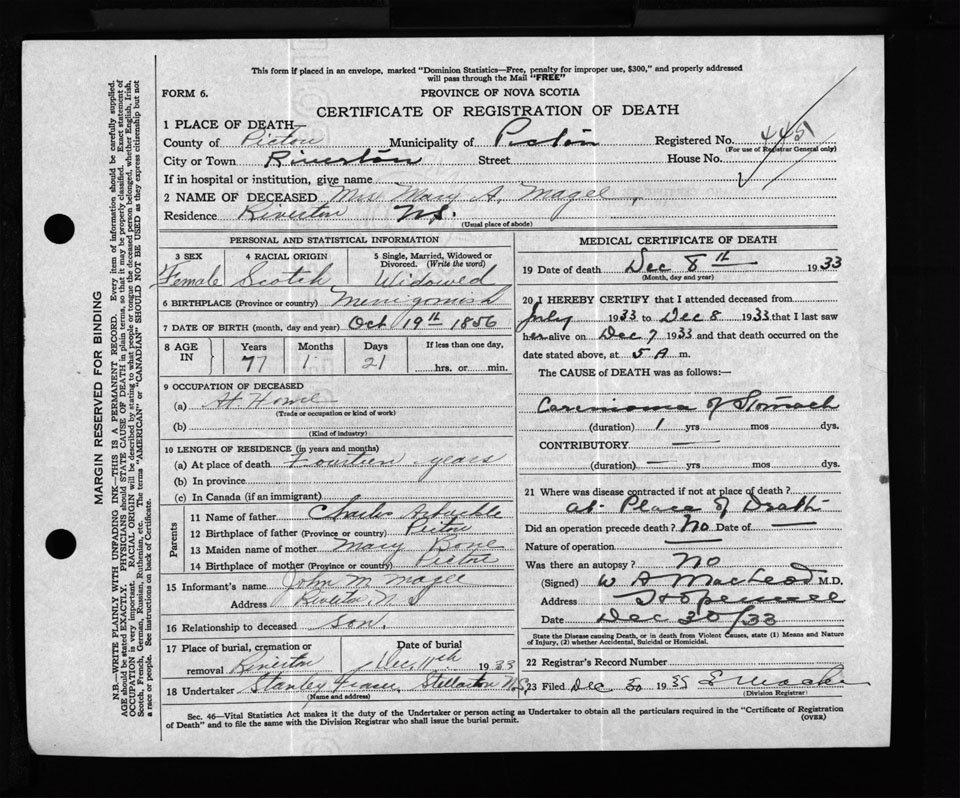 This form if placed in an envelope, marked "Dominion Statistics—Free, penalty for improper use, $300," and properly addressed
will pass through the Mail "FREE"
FORM 6.
PROVINCE OF NOVA SCOTIA
CERTIFICATE OF REGISTRATION OF DEATH
1 PLACE OF DEATH—
County of Pictou Municipality of Pictou Registered No. 445
(For use of Registrar General only)
City or Town Riverton Street House No.
If in hospital or institution, give name
2 NAME OF DECEASED Mrs Mary A. Magee
Residence Riverton N.S.
(Usual place of abode)
PERSONAL AND STATISTICAL INFORMATION
3 SEX 4 RACIAL ORIGIN 5 Single, Married, Widowed or Divorced. (Write the word)
Female Scotch Widowed
6 BIRTHPLACE (Province or country) Merrigomish
7 DATE OF BIRTH (month, day and year) Oct 19th 1856
8 AGE IN Years Months Days If less than one day,
77 1 21 hrs. or min.
9 OCCUPATION OF DECEASED
(a) At Home
(Trade or occupation or kind of work)
(b)
(Kind of industry)
10 LENGTH OF RESIDENCE (in years and months)
(a) At place of death Fourteen years
(b) In province
(c) In Canada (if an immigrant)
Parents
11 Name of father Charles
12 Birthplace of father (Province or country) Pictou
13 Maiden name of mother Mary
14 Birthplace of mother (Province or country) Pictou
15 Informant's name John M. Magee
Address Riverton N S
16 Relationship to deceased son.
17 Place of burial, cremation or removal Riverton Date of burial Dec. 11th 1933
18 Undertaker Stanley Fraser, Stellarton N.S.
(Name and address)
MEDICAL CERTIFICATE OF DEATH
19 Date of death Dec 8th 1933
(Month, day and year)
20 I HEREBY CERTIFY that I attended deceased from
July 1933 to Dec 8 1933 that I last saw
her alive on Dec 7 1933 and that death occurred on the
date stated above, at 5 A m.
The CAUSE of DEATH was as follows:
Carcinoma of Stomach
(duration) 1 yrs mos dys.
CONTRIBUTORY —
(duration) — yrs mos dys.
21 Where was disease contracted if not at place of death?
at Place of Death
Did an operation precede death? No Date of —
Nature of operation
Was there an autopsy? No
(Signed) W A MacLeod M.D.
Address Hopewell
Date Dec 30/33
State the Disease causing Death, or in death from Violent Causes, state (1) Means and Nature
of Injury, (2) whether Accidental, Suicidal or Homicidal.
22 Registrar's Record Number
23 Filed Dec 30 1933
(Division Registrar)
Sec. 46—Vital Statistics Act makes it the duty of the Undertaker or person acting as Undertaker to obtain all the particulars required in the "Certificate of Registration
of Death" and to file the same with the Division Registrar who shall issue the burial permit.
(OVER)
MARGIN RESERVED FOR BINDING
N.B.—WRITE PLAINLY WITH UNFADING INK—THIS IS A PERMANENT RECORD. Every item of information should be carefully supplied.
AGE should be stated EXACTLY. PHYSICIANS should STATE CAUSE OF DEATH in plain terms, so that it may be properly classified. Exact statement of
OCCUPATION is very important. RACIAL ORIGIN will be described by stating to what people or tongue the deceased person belonged, whether English, Irish,
Scotch, French, German, Russian, Ruthenian, etc. The terms "AMERICAN" or "CANADIAN" SHOULD NOT BE USED as they express citizenship but not
a race or people. See instructions on back of Certificate.